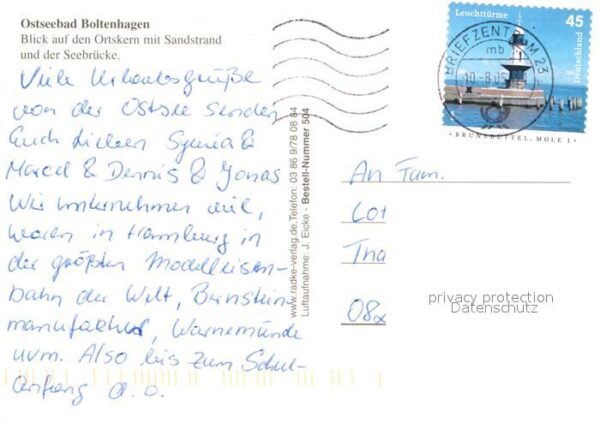 Ostseebad Boltenhagen
Blick auf den Ortskern mit Sandstrand
und der Seebrücke.
Viele Urlaubsgrüße
von der Ostsee senden
Euch Lieben Sylvia &
Marcel & Dennis & Jonas
Wir unternehmen viel,
waren in Hamburg in
der größten Modelleisen-
bahn der Welt, Bernstein-
manufaktur, Warnemünde
uvm. Also bis zum Schul-
anfang
www.radke-verlag.de, Telefon: 03 86 9/78 08 84
Luftaufnahme: J. Eicke · Bestell-Nummer 504
Leuchttürme
45
Deutschland
BRUNSBÜTTEL, MOLE 1
BRIEFZENTRUM 23
mb
An Fam.
Lot
Ina
08
privacy protection
Datenschutz